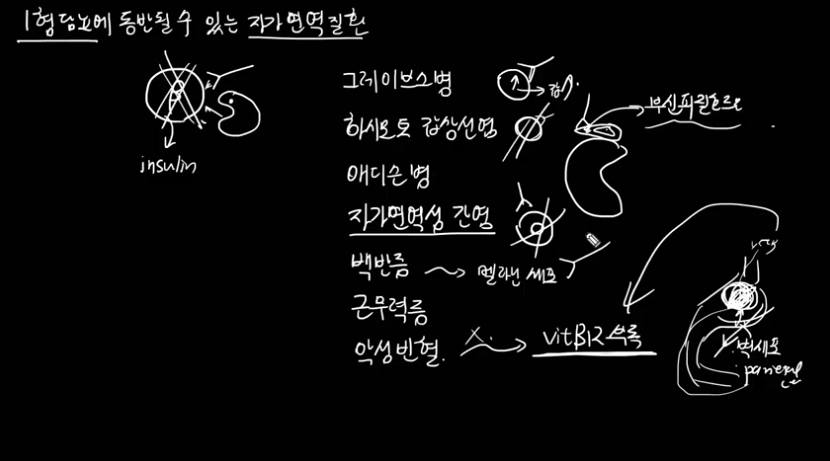 1형당뇨에 동반될 수 있는 자가면역질환
insulin
그레이브스병
하시모토 갑상선염
부신피질호르몬
애디슨병
자가면역성 간염
백반증 멜라닌 세포
근무력증
악성빈혈 vitB12 부족
벽세포
parietal
cell